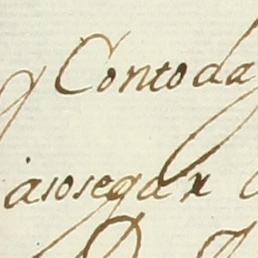 y Contoda
asosegar